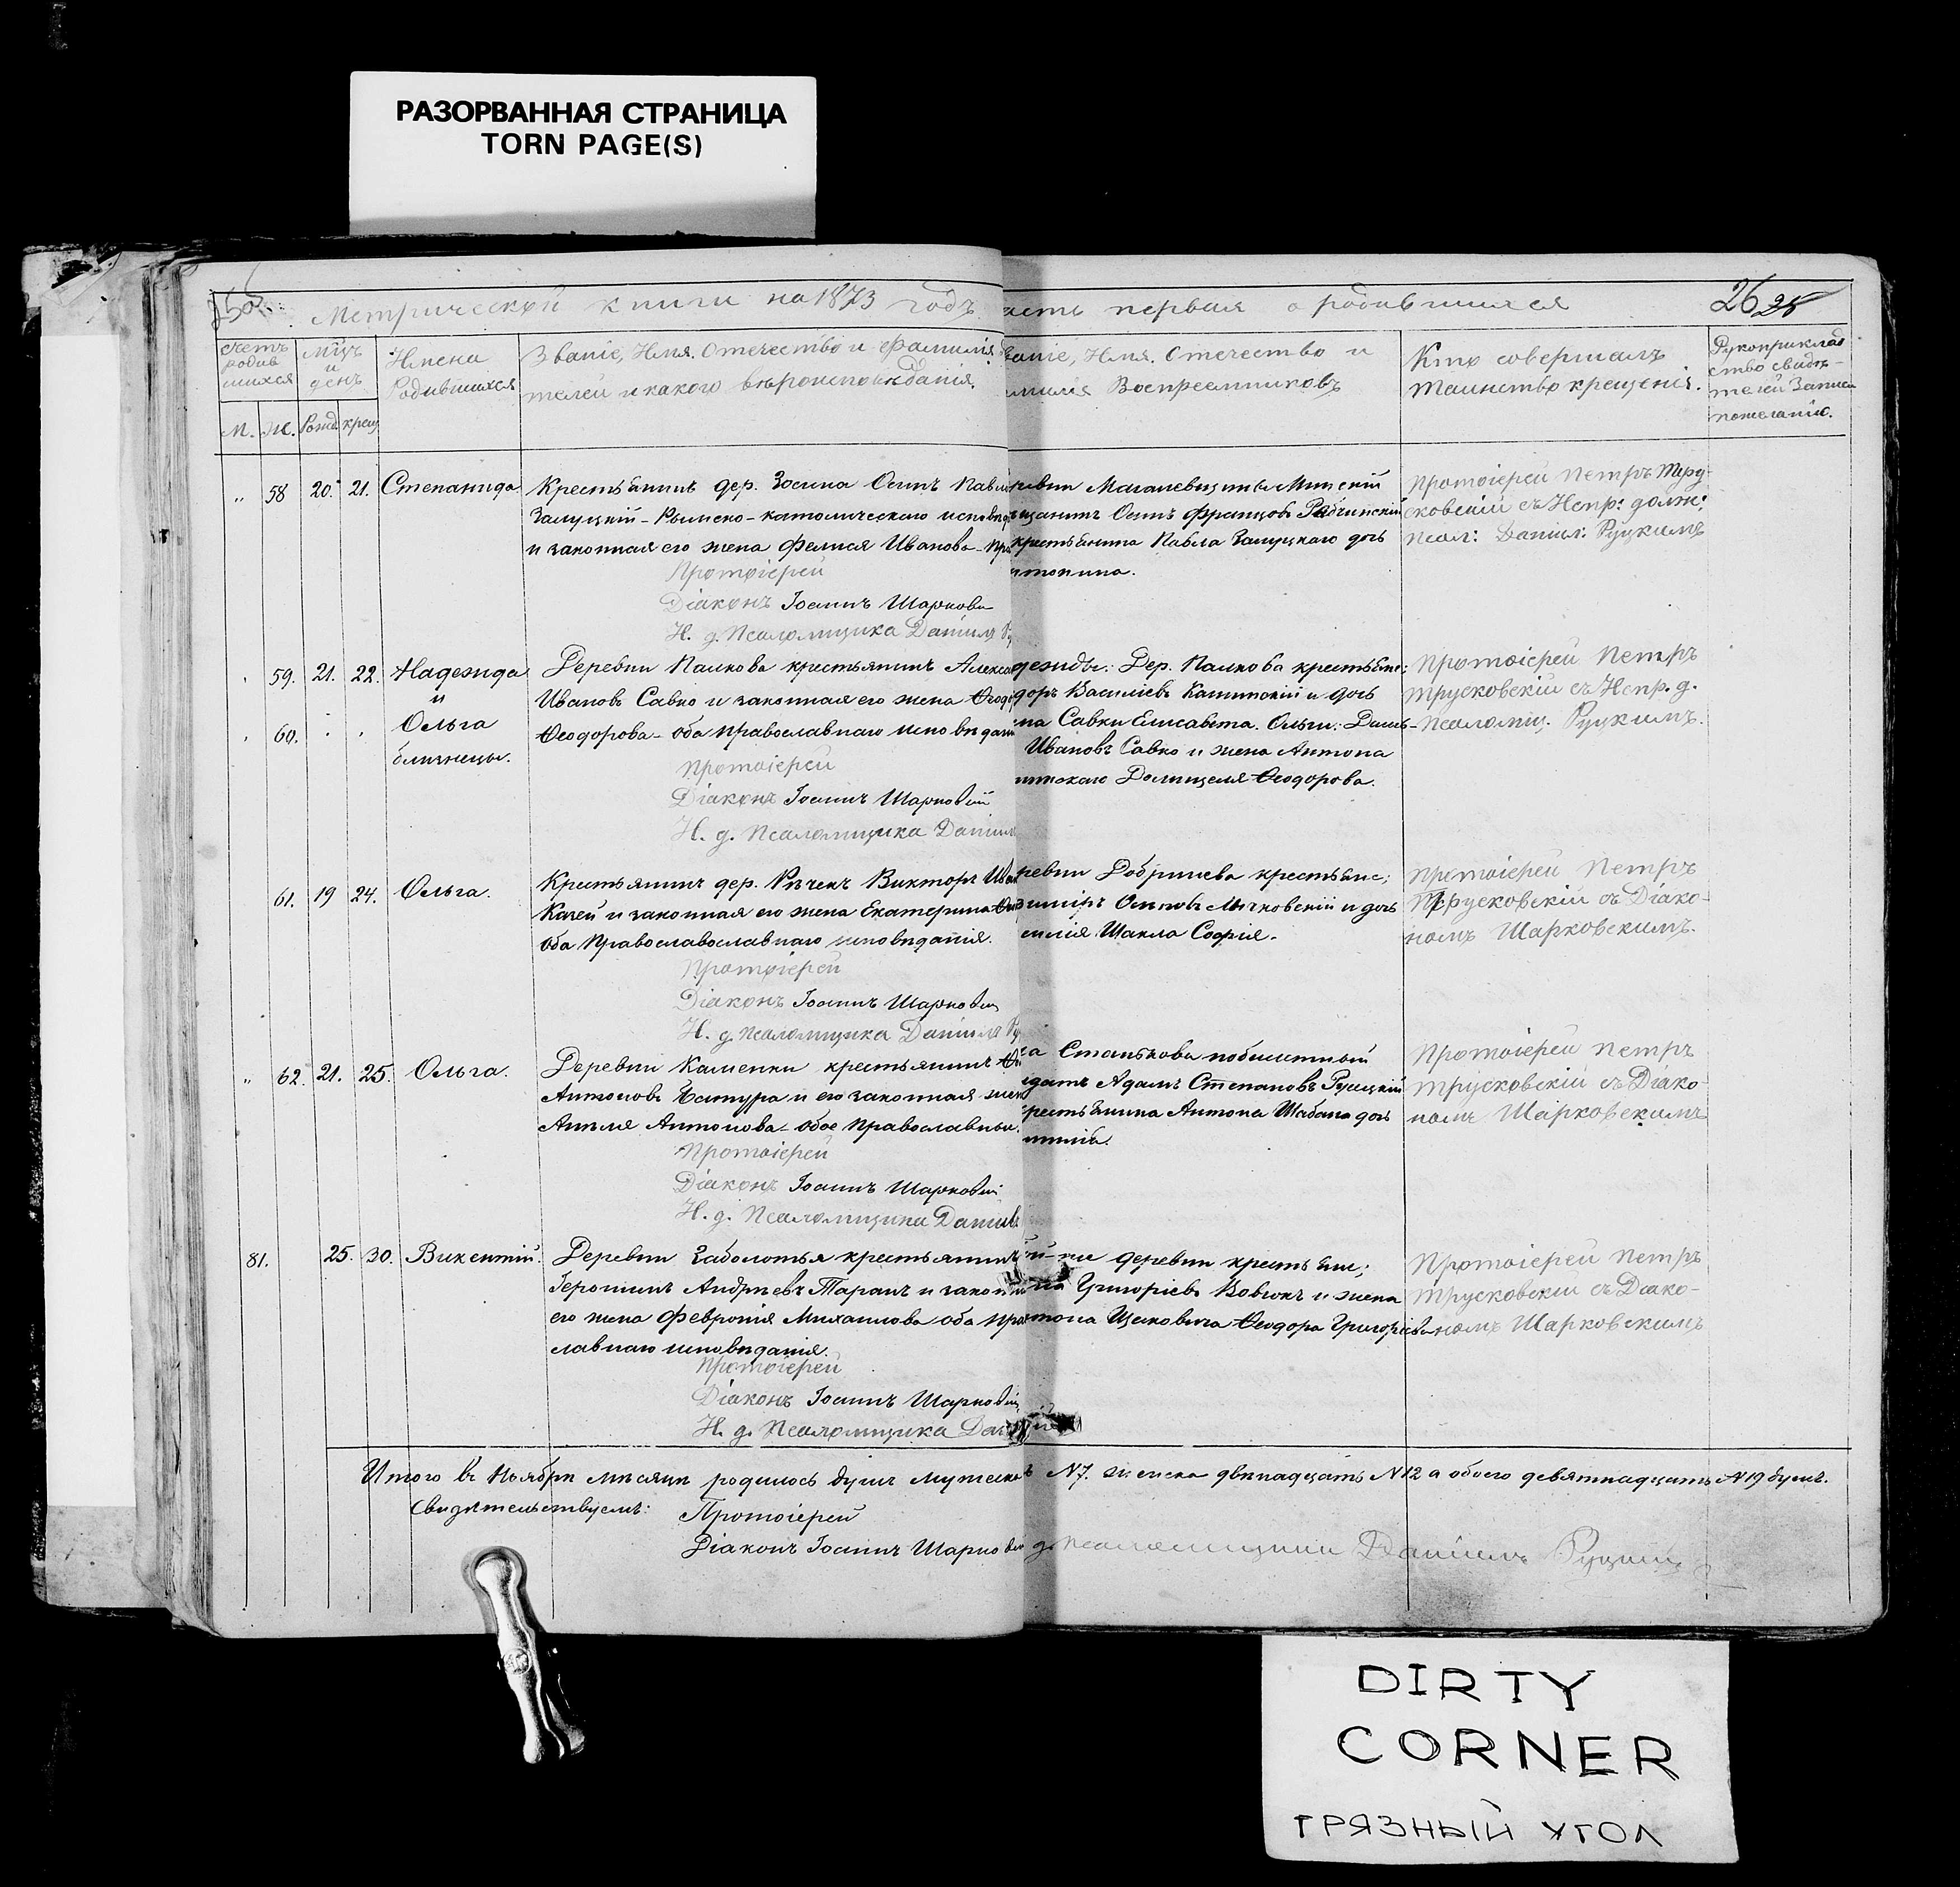 РАЗОРВАННАЯ СТРАНИЦА
TORN PAGE(S)
Метрической книги на 1873 годъ
асть первая о родившихся
26
Счетъ родив шихся
Мцъ и день
Имена Родившихся
Званіе, Имя. Отечество и Фамилія
телей и какого вѣроисповѣданія.
ваніе, Имя. Отечество и
милія Воспреемниковъ
Кто совершалъ
таинство крещенія.
Рукоприклад
ство свидѣ-
телей записи
пожеланію.
М. Ж. Рожд крещ
58 20. 21. Степанида
Крестьянинъ дер. Осипъ Павл
Залуцкій - Римско-католическаго исповѣд
и законная его жена Фелися Иванова - пра
Протоіерей
Діаконъ Іоаннъ Шарковс
Н. д. Псаломщика Даніилъ
ревни Минскій
щанинъ Осипъ Францовъ
крестьянина Павла Залуцкаго дочь
нтонина.
Протоіерей Петръ Тру-
сковскій съ Испр: долж:
псал: Даніил: Руцкимъ
59. 21. 22. Надежда
и
60. Ольга
близнецы.
Деревни Палкова крестьянинъ Алекса
Ивановъ Савко и законная его жена Ѳеодо
Ѳеодорова - оба православнаго исповѣдан
Протоіерей
Діаконъ Іоаннъ Шарковскій
Н. д. Псаломщика Даніил
дежды: Дер. Палкова крестьяне;
доръ Василіевъ Каминскій и дочь
на Савки Елисавета. Ольги:
Ивановъ Савко и жена Антона
Ѳеодорова.
Протоіерей Петръ
Трусковскій съ Испр. д.
Псаломщ. Руцкимъ.
61. 19 24. Ольга.
Крестьянинъ дер. Рѣчекъ Викторъ Ива
и законная его жена Екатерина
оба Православославнаго исповѣданія.
Протоіерей
Діаконъ Іоаннъ Шарковск
Н. д. Псаломщика Даніилъ
ревни Добринева крестьяне;
иміръ Осиповъ и дочь
силія Шакла Софія.
Протоіерей Петръ
Трусковскій съ Діако-
номъ Шарковскимъ.
62. 21. 25. Ольга.
Деревни Каменки крестьянинъ
Антоновъ и его законная жена
Антонова - обое православные.
Протоіерей
Діаконъ Іоаннъ Шарковскі
Н. д. Псаломщика Даніилъ
Станькова побилетный
лдатъ Адамъ Степановъ
рестьянина Антона Шабана дочь
Протоіерей Петръ
Трусковскій съ Діако-
номъ Шарковскимъ
81. 25. 30. Викентій.
Деревни Заболотья крестьянинъ
Іеронимъ Андреевъ Таранъ и законная
его жена Февронія Михаилова оба прав
славнаго исповѣданія.
Протоіерей
Діаконъ Іоаннъ Шарковскій
Н. д. Псаломщика Дан
й-же деревни крестьяне;
Григоріевъ Вовкъ и жена
тона Ѳеодора Григоріева
Протоіерей Петръ
Трусковскій съ Діако-
номъ Шарковскимъ
Итого въ Ноябрѣ мѣсяцѣ родилось душъ мужеска N7. женска двѣнадцать N12 а обоего девятнадцать N19 душъ.
Свидѣтельствуемъ: Протоіерей
Діаконъ Іоаннъ Шарковскій д. Псаломщика Даніилъ Руцкій
DIRTY
CORNER
ГРЯЗНЫЙ УГОЛ